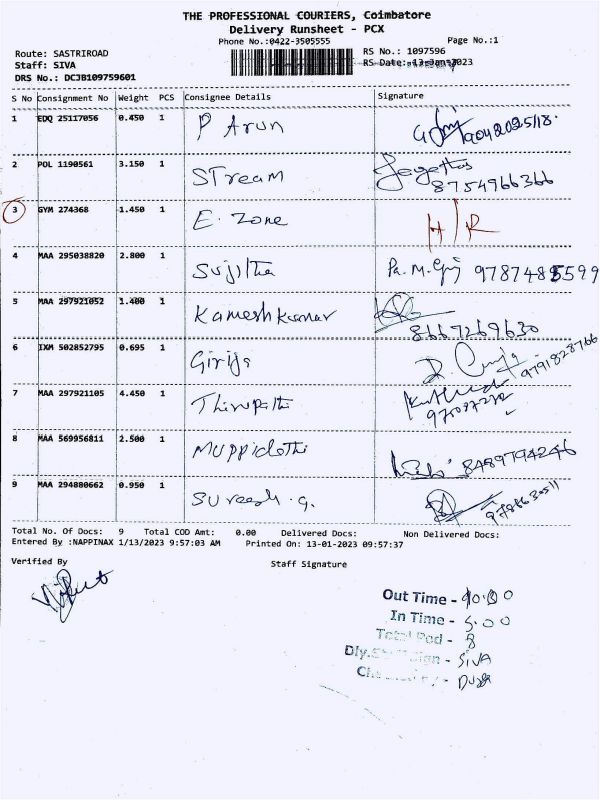 THE PROFESSIONAL COURIERS, Coimbatore
Delivery Runsheet - PCX
Phone No.:0422-3505555
Page No.:1
Route: SASTRIROAD
RS No.: 1097596
Staff: SIVA
RS Date: 13-Jan-2023
DRS No.: DCJB109759601
S No Consignment No Weight PCS Consignee Details Signature
1 EDQ 25117056 0.450 1 P Arun
2 POL 1190561 3.150 1 STream 8754966366
3 GYM 274368 1.450 1 E. Zone
4 MAA 295038820 2.800 1 Sujitha
5 MAA 297921052 1.400 1 Kameshkumar 8667269630
6 IXM 502852795 0.695 1 Girija 9791828766
7 MAA 297921105 4.450 1 Thirupathi
8 MAA 569956811 2.500 1 Muppidathi 8489794246
9 MAA 294880662 0.950 1 Suresh.G.
Total No. Of Docs: 9 Total COD Amt: 0.00 Delivered Docs: Non Delivered Docs:
Entered By :NAPPINAX 1/13/2023 9:57:03 AM Printed On: 13-01-2023 09:57:37
Verified By
Staff Signature
Out Time - 10.00
In Time - 5.00
Total Pod - 8
Dly.Staff Sign - SIVA